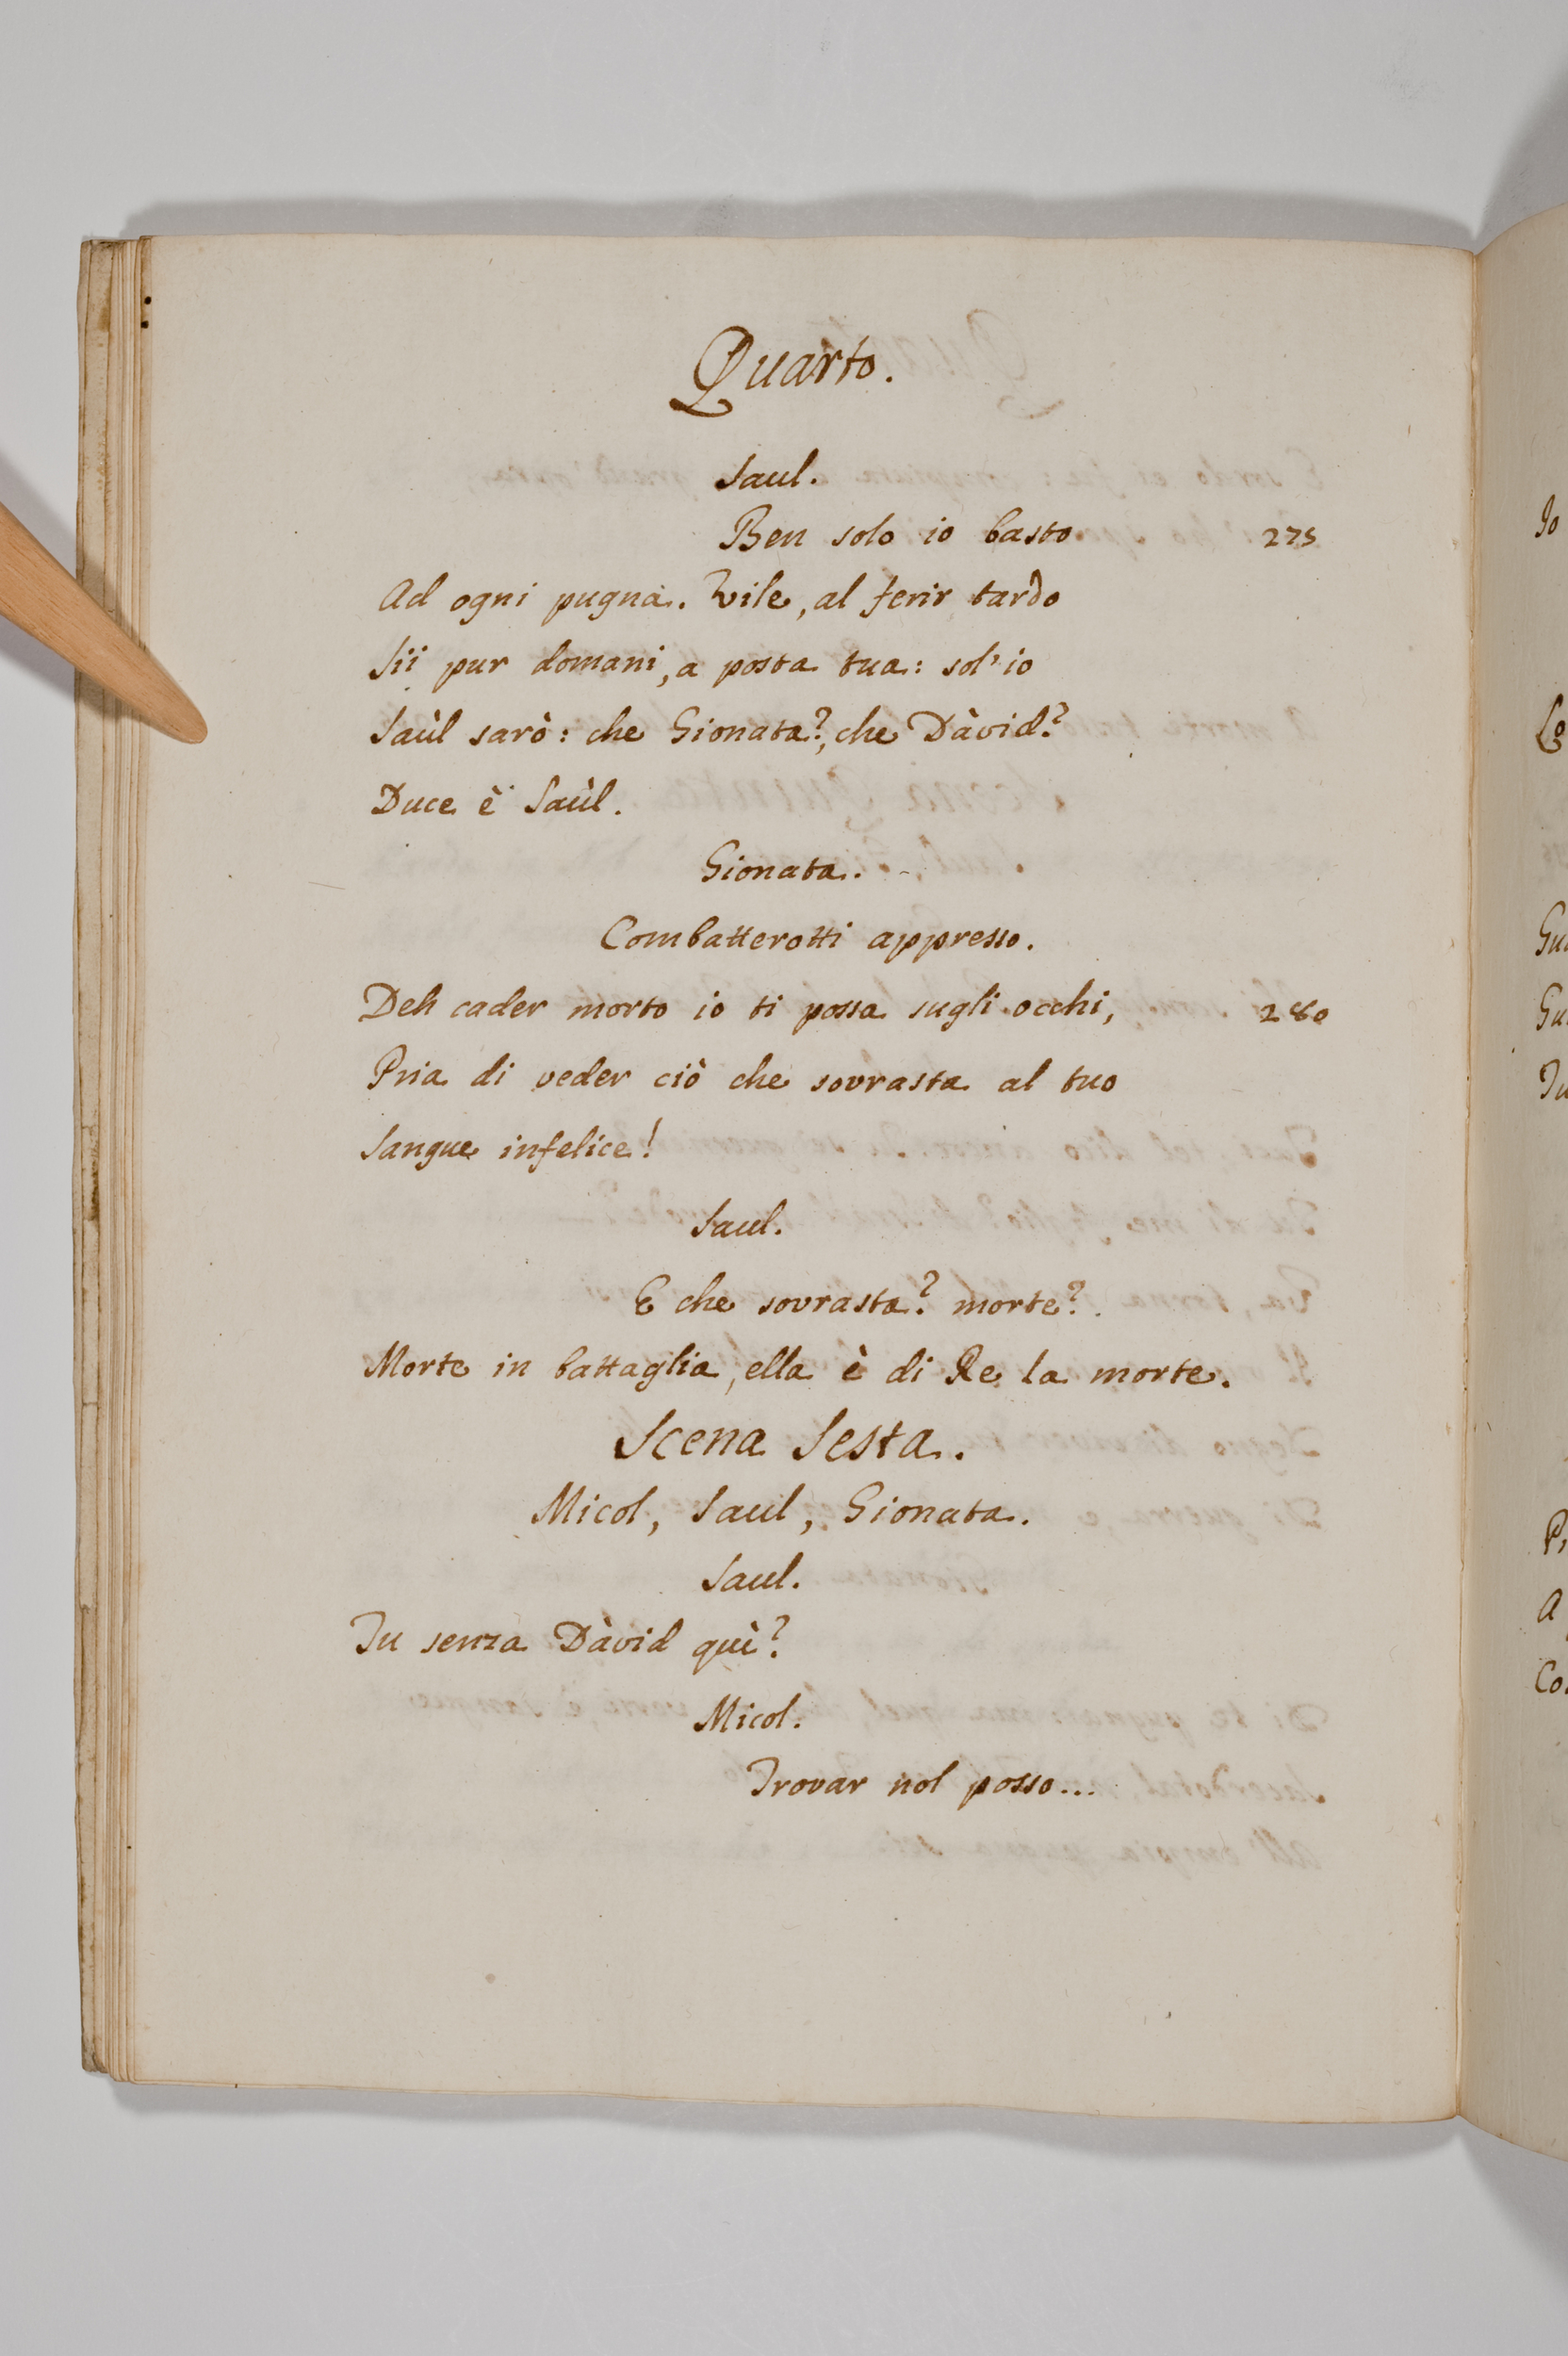 Quarto.
Saul.
Ben solo io basto 275
Ad ogni pugna. Tu vile, al ferir tardo
Sii pur domani, a posta tua: sol' io
Saùl sarò: che Gionata?, che Dàvid?
Duce è Saùl.
Gionata.
Combatterotti appresso.
Deh cader morto io ti possa sugli occhi, 280
Pria di veder ciò che sovrasta al tuo
Sangue infelice!
Saul.
E che sovrasta? morte?
Morte in battaglia, ella è di Re la morte.
Scena Sesta.
Micol, Saul, Gionata.
Saul.
Tu senza Dàvid quì?
Micol.
Trovar nol posso...
Io
Lo
Gu
Gu
Tu
Pr
A
Co